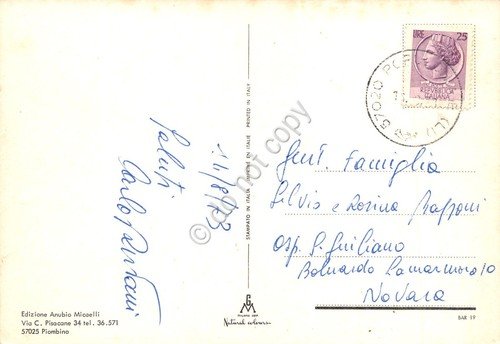 LIRE 25
REPVBBLICA
ITALIANA
57020 POP
(LI)
11/8/73
Saluti
Carlo
STAMPATO IN ITALIA - IMPRIMÉ EN ITALIE - PRINTED IN ITALY
do not copy
Gent. Famiglia
Silvio e Rosina
Osp. S. Giuliano
Lamarmora 10
Novara
Edizione Anubio Miozelli
Via C. Pisacane 34 tel. 36.571
57025 Piombino
GM
Natural colours
BAR 19